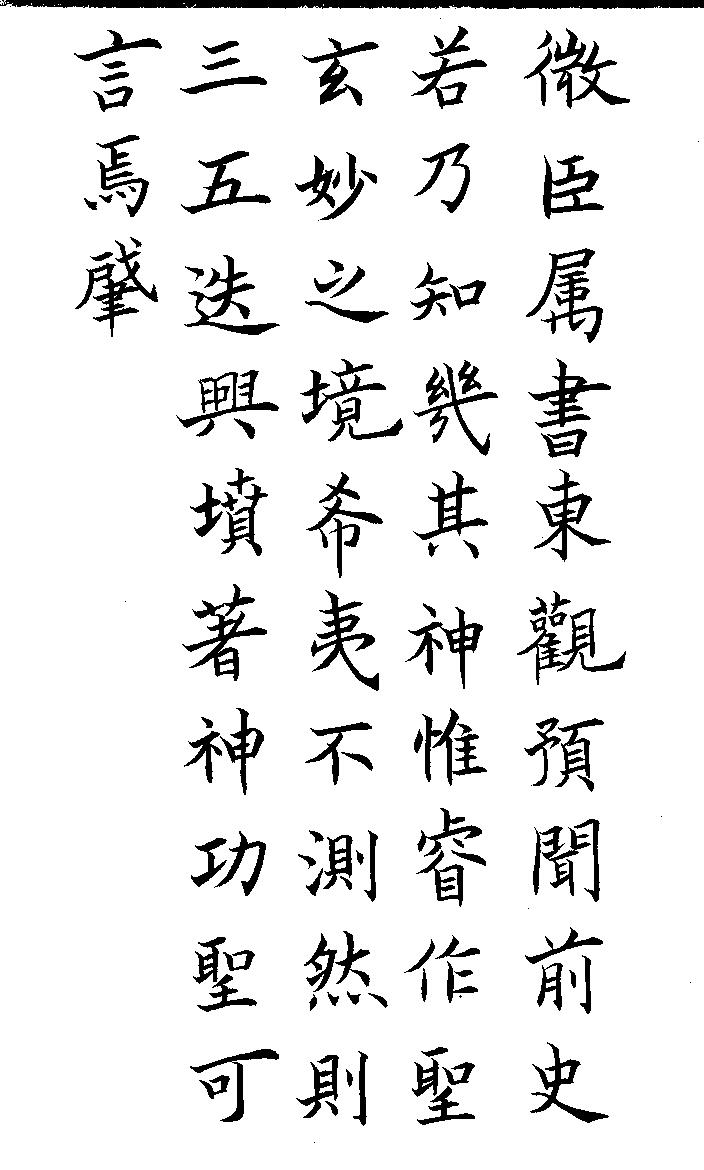 微臣属書東觀預聞前史
若乃知幾其神惟睿作聖
玄妙之境希夷不測然則
三五迭興墳著神功聖可
言焉肇